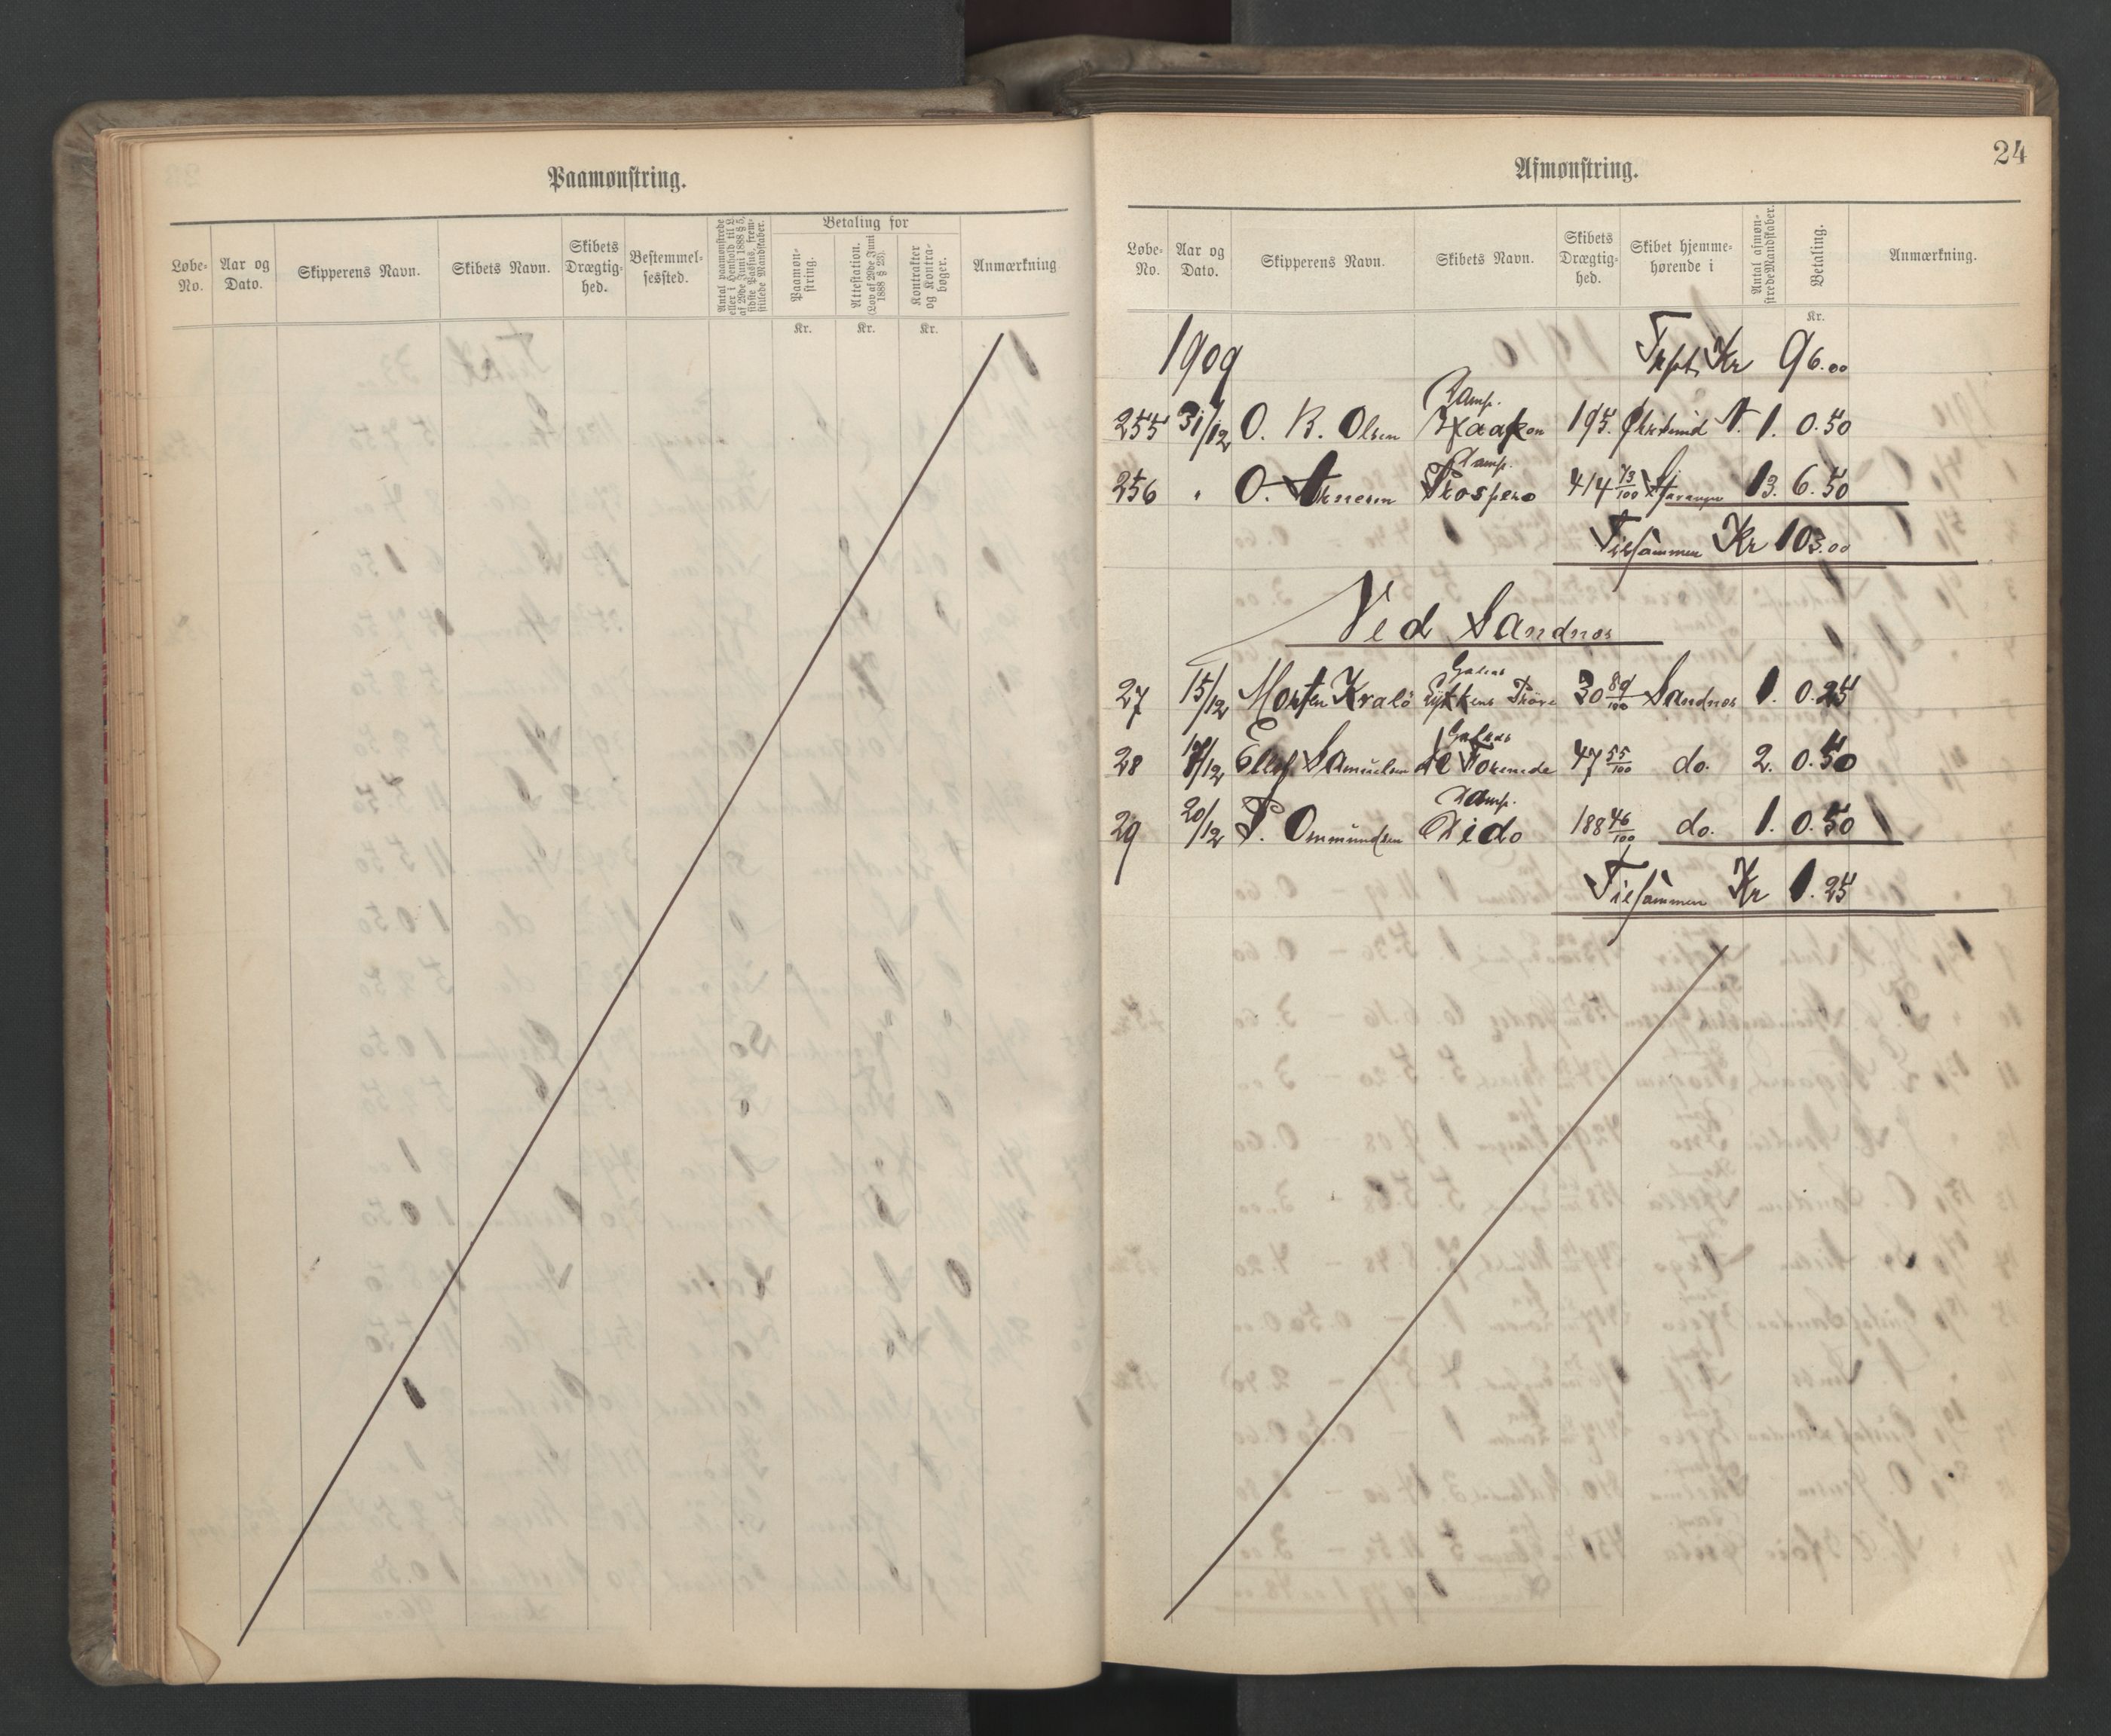 Paamønstring.
Løbe-No.
Aar og Dato.
Skipperens Navn.
Skibets Navn.
Skibets Drægtig-hed.
Bestemmel-sessted.
Antal paamønstrede eller i Henhold til L. af 29de Juni 1888 § 5, sidste Passus, frem-stillede Mandskaber.
Betaling for
Paamøn-string.
Attestation. (Lov af 29de Juni 1888 § 23).
Kontrakter og Kontra-bøger.
Anmærkning
Kr. Kr. Kr.
24
Afmønstring.
Løbe-No.
Aar og Dato.
Skipperens Navn.
Skibets Navn.
Skibets Drægtig-hed.
Skibet hjemme-hørende i
Antal afmøn-strede Mandskaber.
Betaling.
Anmærkning.
Kr.
1909 Trspt. Kr 96.00
Damp.
255 31/12 O. B. Olsen Haakon 195. N. 1. 0.50
Damp.
256 " O. Prospero 414 73/100 Stavanger 13. 6.50
Tilsammen Kr 103.00
Ved Sandnes
Galeas
27 15/12 Morten Kralö Lykkens Pröve 30 89/100 Sandnes 1. 0.25
Galeas
28 17/12 Ellef Samuelsen de Forenede 47 55/100 do. 2. 0.50
Damp.
29 20/12 P. Ommundsen Dido 188 46/100 do. 1. 0.50
Tilsammen Kr 1.25